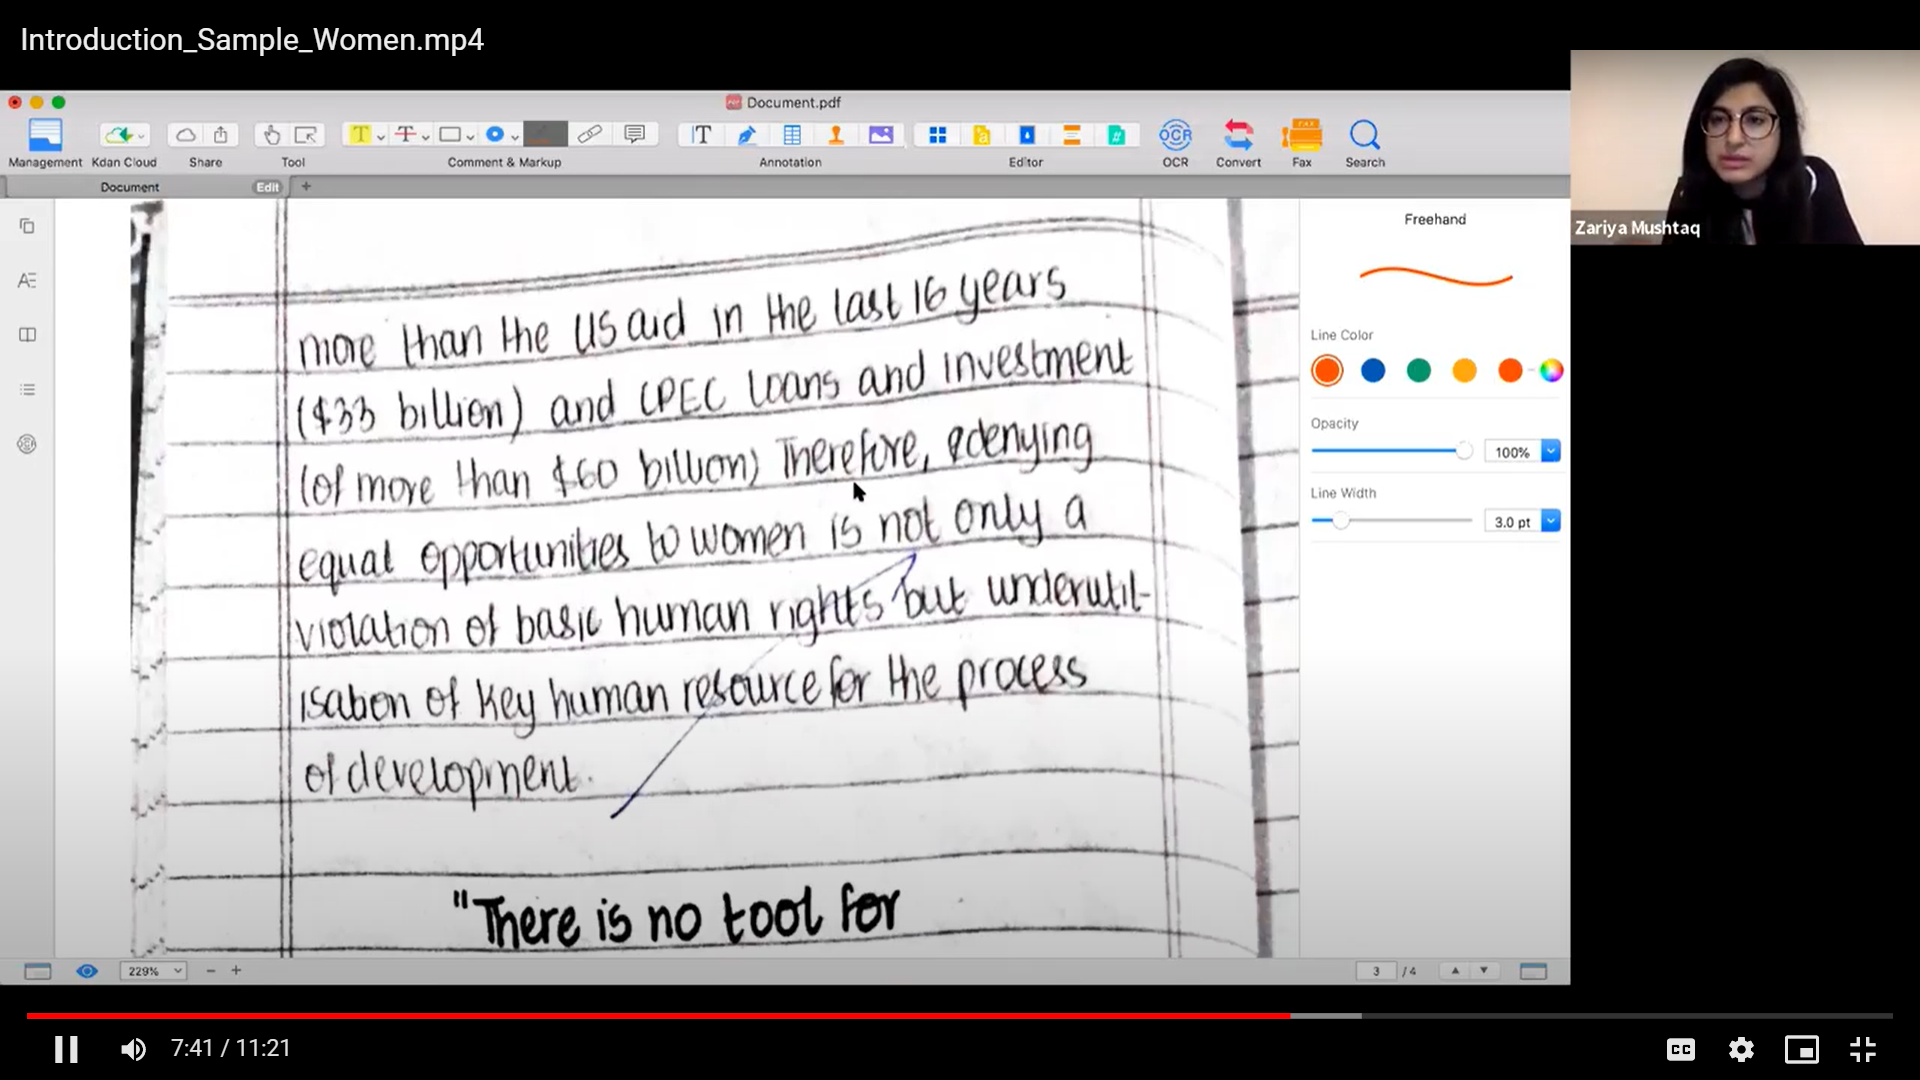 Introduction_Sample_Women.mp4
Document.pdf
Management
Kdan Cloud
Share
Tool
Comment & Markup
Annotation
Editor
OCR
OCR
Convert
FAX
Fax
Search
Document
Edit
+
more than the US aid in the last 16 years
($33 billion) and CPEC loans and investment
(of more than $60 billion) Therefore, denying
equal opportunities to women is not only a
violation of basic human rights but underutil-
isation of key human resource for the process
of development.
"There is no tool for
Freehand
Line Color
Opacity
100%
Line Width
3.0 pt
Zariya Mushtaq
229%
3 / 4
7:41 / 11:21
CC